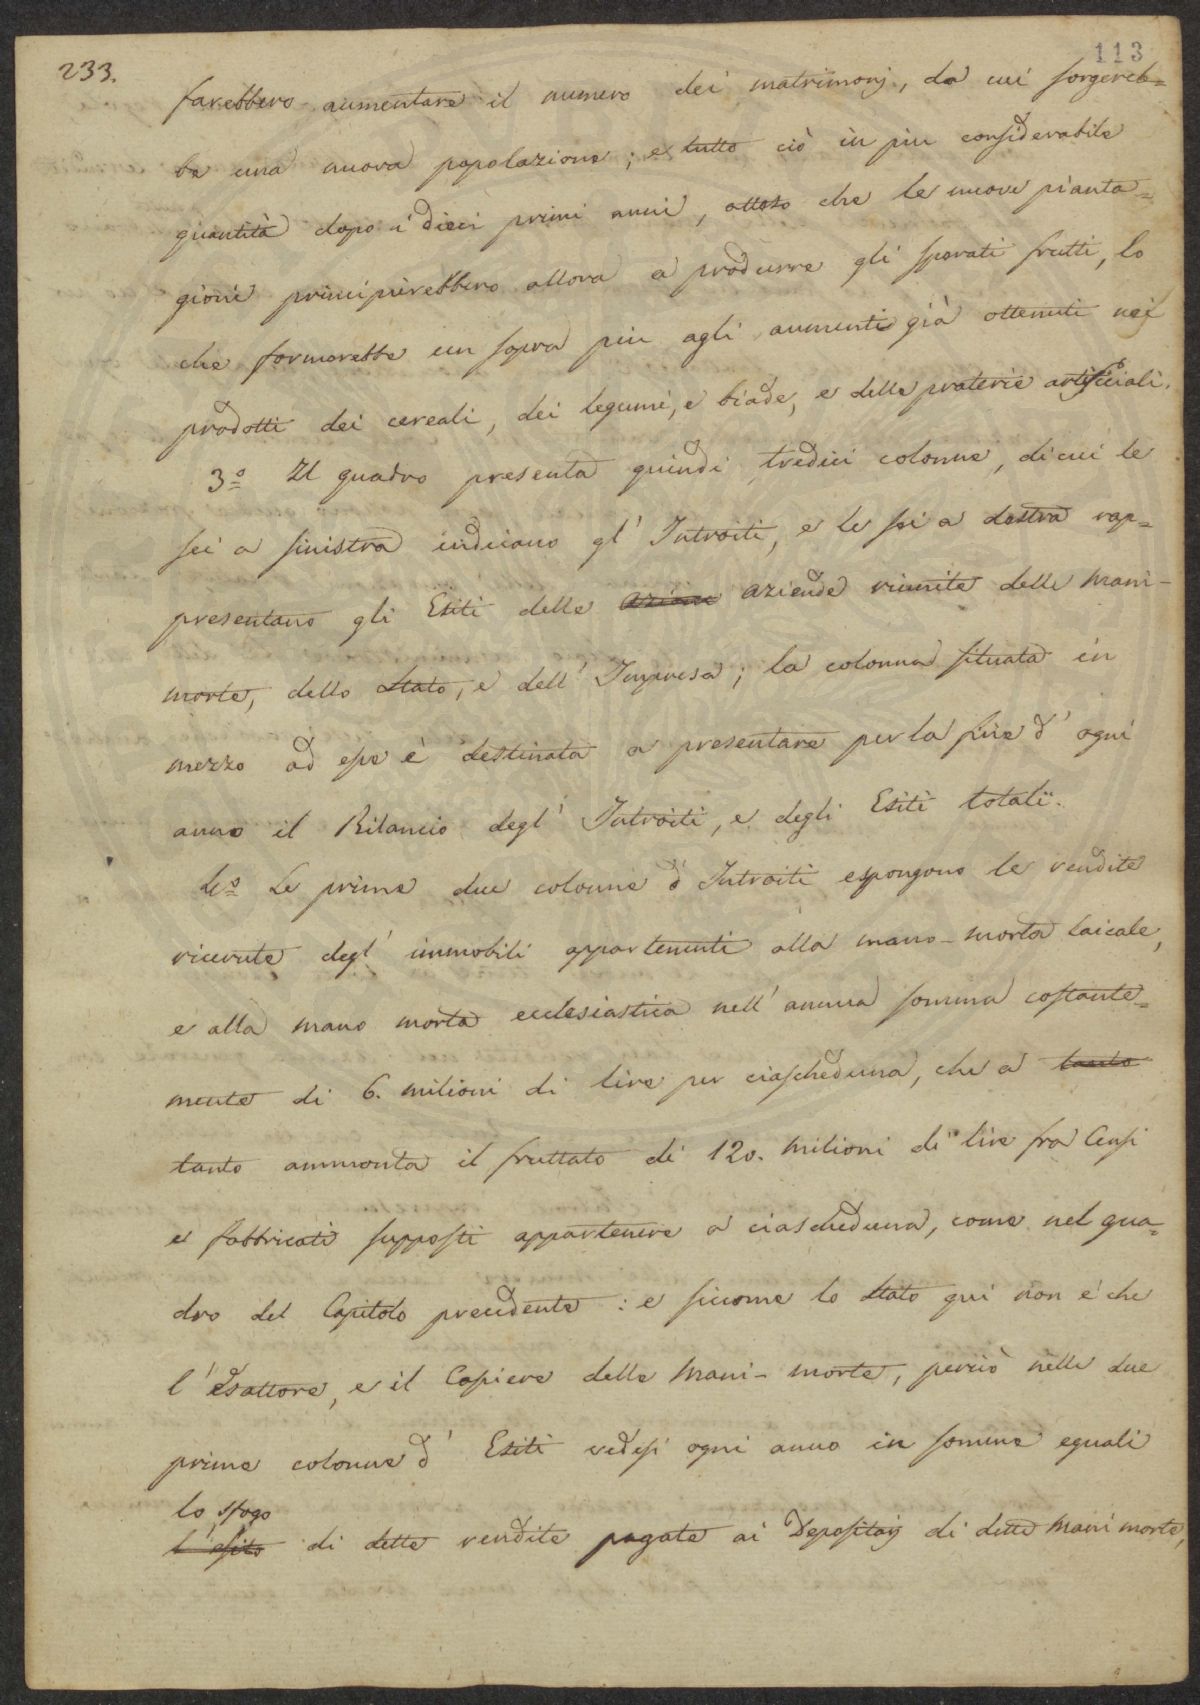 233.
113
farebbero aumentare il numero dei matrimonj, da cui sorgereb=
be una nuova popolazione; e tutto ciò in più considerabile
quantità dopo i dieci primi anni, atteso che le nuove pianta=
gioni principierebbero allora a produrre gli sperati frutti, lo
che formerebbe un sopra più agli aumenti già ottenuti nei
prodotti dei cereali, dei legumi, e biade, e delle praterie artificiali.
3.º Il quadro presenta quindi tredici colonne, di cui le
sei a sinistra indicano gl' Introiti, e le sei a destra rap=
presentano gli Esiti delle azioni aziende riunite delle Mani-
morte, dello Stato, e dell' Impresa; la colonna situata in
mezzo ad esse è destinata a presentare per la fine d' ogni
anno il Bilancio degl' Introiti, e degli Esiti totali.
4.º Le prime due colonne d' Introiti espongono le rendite
ricevute degl' immobili appartenenti alla mano-morta laicale,
e alla mano morta ecclesiastica nell' annua somma costante=
mente di 6. milioni di lire per ciascheduna, che a tanto
tanto ammonta il fruttato di 120. milioni di lire fra Censi
e fabbricati supposti appartenere a ciascheduna, come nel qua=
dro del Capitolo precedente: e siccome lo Stato quì non è che
l' Esattore, e il Cassiere delle Mani-morte, perciò nelle due
prime colonne d' Esiti vedesi ogni anno in somme eguali
lo sfogo
l' esito di dette rendite pagate ai Depositarj di dette Mani morte,